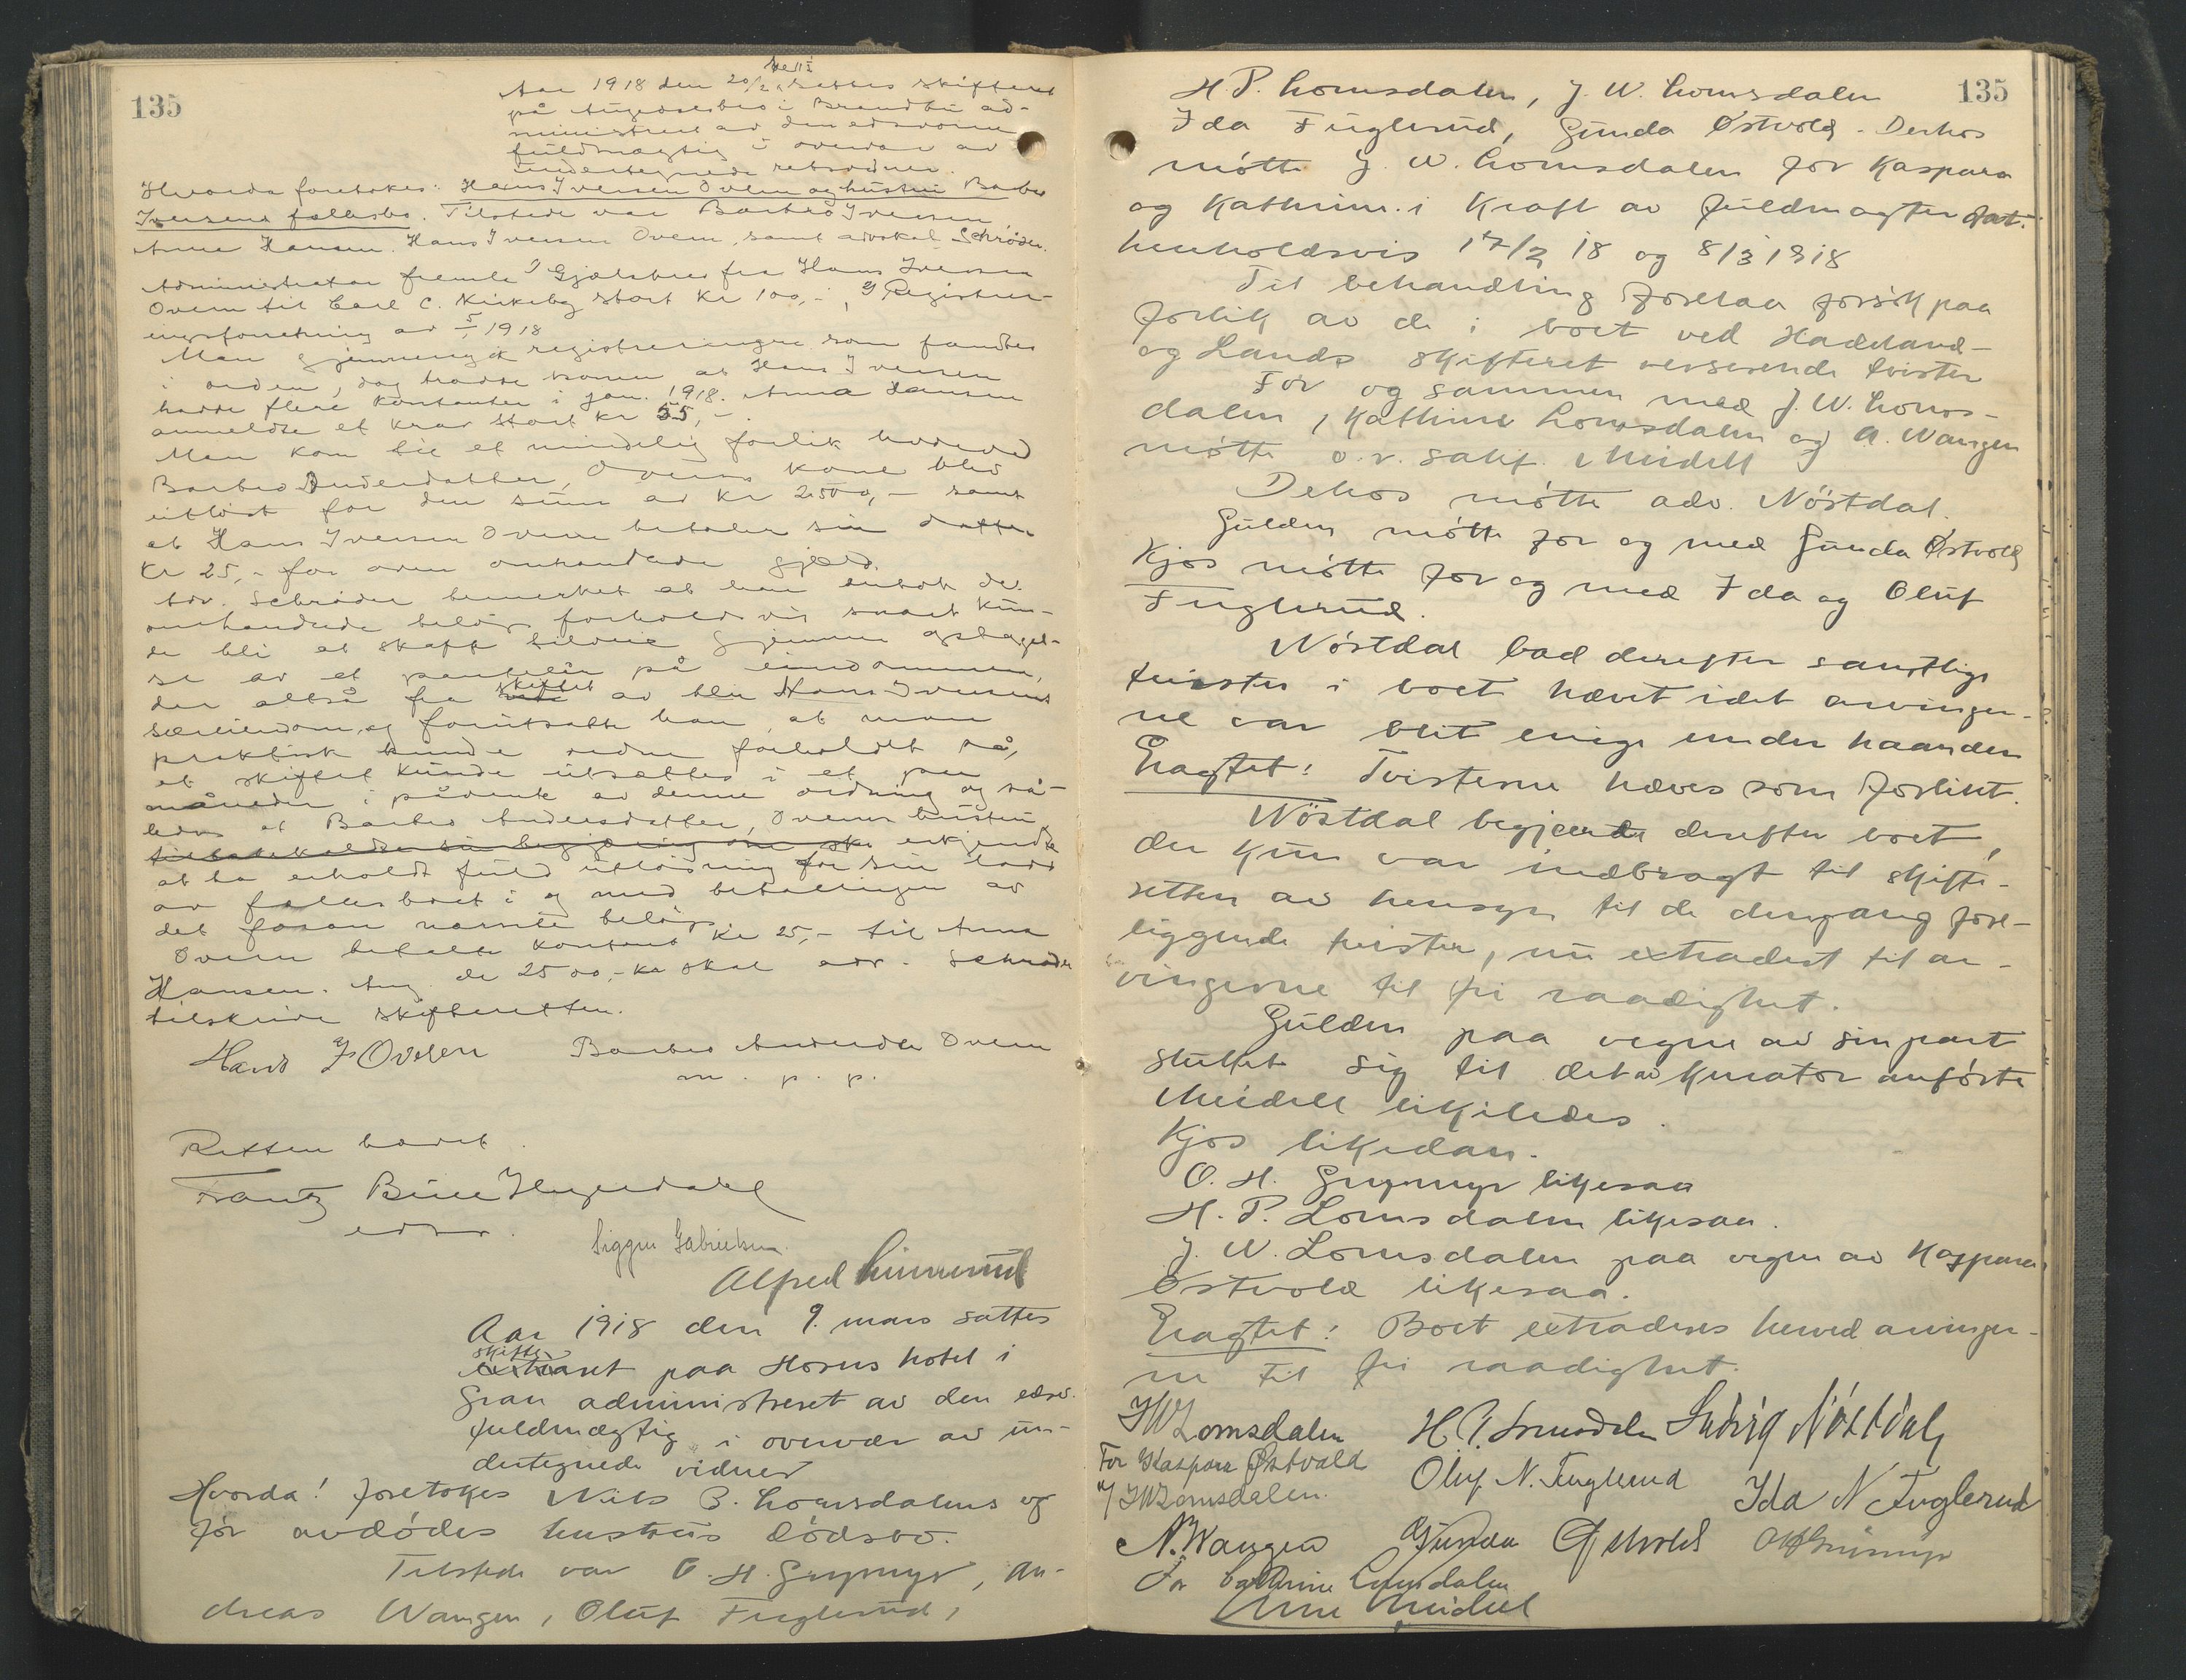 135
Aar 1918 den 20/2 sattes skifteret
på Augedalsbro i Brandbu ad-
ministreret av den edsvorne
fuldmægtig i overvær av
undertegnede retsvidner.
Hvorda foretokes: Hans Iversen Ovren og hustru Barbro
Iversens fællesbo. Tilstede var Barbro Iversen
Anna Hansen. Hans Iversen Ovren, samt advokat Schrøder.
Administrator fremla 1) Gjældsbrev fra Hans Iversen
Ovren til Carl C. Kirkeby stort kr 100,-, 2) Registrer-
ingsforretning av 1918
Man gjennemgik registreringen som fandtes
i orden, dog trodde konen at Hans Iversen
hadde flere kontanter i jan. 1918. Anna Hansen
anmeldte et krav stort kr 55,-.
Man kom til et mindelig forlik hvorved
Barbro Andersdatter, Ovrens kone blev
utløst for den sum av kr 2500,- samt
at Hans Iversen Ovren betaler sin datter
kr 25,- for oven omhandlede gjæld.
Adv. Schrøder bemerket at han antok det
omhandlede beløp forholdsvis snart kun-
de bli at skaffe tilveie gjennem optagel-
se av et pantelån på eiendommen,
der altså fra skiftet av blir Hans Iversens
særeiendom, og forutsatte han, at man
praktisk kunde ordne forholdet så,
at skiftet kunde utsættes i et par
måneder i påvente av denne ordning og så-
ledes at Barbro Andersdatter, Ovrens hustru
tilbakekaldte sin begjæring om skifte erkjendte
at ha erholdt fuld utløsning for sin lodd
av fællesboet i og med betalingen av
det foran nævnte beløp.
Ovren betalte kontant kr 25,- til Anna
Hansen. Ang. de 2500,- kr skal adv. Schrøder
tilskrive skifteretten.
Hans I Ovren Barbro Andersdtr Ovren
m. p. p.
Retten hævet.
Frantz Bülle Hegendahl
edsv.
Sigger Gabrielsen
Alfred Linnerud
Aar 1918 den 9. mars sattes
skifteret paa Horns hotel i
Gran administreret av den edsv.
fuldmægtig i overvær av un-
dertegnede vidner
Hvorda! foretokes Nils P. Lomsdalens og
før avdødes hustrus dødsbo.
Tilstede var O. H. Grymyr, An-
dreas Wangen, Oluf Fuglerud,
135
H. P. Lomsdalen, J. W. Lomsdalen
Ida Fuglerud, Gunda Østvold. Derhos
møtte J. W. Lomsdalen for Kaspara
og Kathrine i kraft av fuldmagter dat.
henholdsvis 17/2 18 og 8/3 1918
Til behandling forelaa forsøk paa
forlik av de i boet ved Hadeland-
og Lands skifteret verserende tvister
For og sammen med J. W. Loms-
dalen, Kathrine Lomsdalen og A. Wangen
møtte o.r. sakf. Meidell
Dehos møtte adv. Nöstdal.
Gulden møtte for og med Gunda Østvold
Kjos møtte for og med Ida og Oluf
Fuglerud.
Nöstdal bad derefter samtlige
tvister i boet hævet idet arvinger-
ne var blit enige under haanden
Eragtet: Tvisterne hæves som forlikt.
Nöstdal begjærde derefter boet,
der kun var indbragt til skifte-
retten av hensyn til de dengang fore-
liggende tvister, nu extradert til ar-
vingerne til fri raadighet.
Gulden paa vegne av sin part
sluttet sig til det av kurator anførte
Meidell likeledes.
Kjos likedan.
O. H. Grymyr likesaa
H. P. Lomsdalen likesaa.
J. W. Lomsdalen paa vegne av Kaspara
Østvold likesaa.
Eragtet: Boet extraderes herved arvinger-
ne til fri raadighet.
JWLomsdalen H. P. Lomsdalen Ludvig Nöstdahl
For Kaspara Østvold Oluf N. Fuglerud Ida N Fuglerud
JWLomsdalen.
A. Wangen Gunda Østvold OHGrimyr
For Cathrine Lomsdalen
Arne Meidell